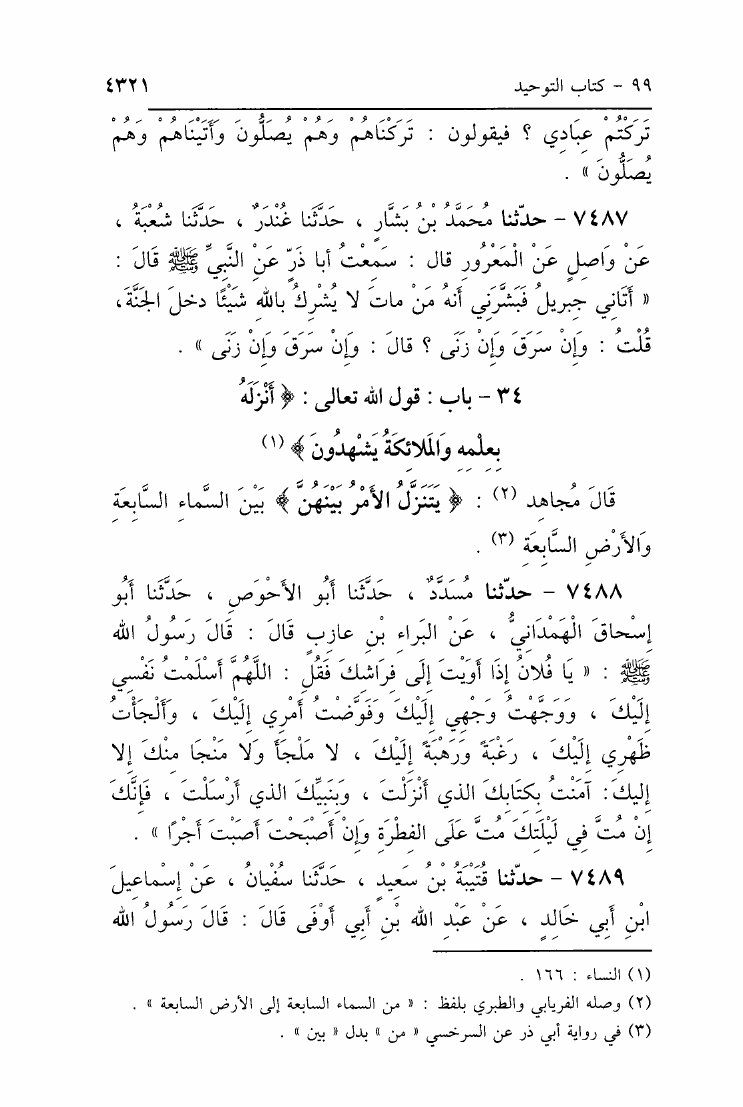 ٩٩ - كتاب التوحيد ٤٣٢١
تَرَكْتُمْ عِبَادِي ؟ فيقولون : تَرَكْنَاهُمْ وَهُمْ يُصَلُّونَ وَأَتَيْنَاهُمْ وَهُمْ
يُصَلُّونَ » .
٧٤٨٧ - حدّثنا مُحَمَّدُ بْنُ بَشَّارٍ ، حَدَّثَنا غُنْدَرٌ ، حَدَّثَنا شُعْبَةُ ،
عَنْ وَاصِلٍ عَنْ الْمَعْرُورِ قال : سَمِعْتُ أبا ذَرٍّ عَنْ النَّبِيِّ ﷺ قَالَ :
« أَتَاني جبريلُ فَبَشَّرَني أنهُ مَنْ ماتَ لا يُشْرِكُ باللهِ شَيْئًا دخلَ الجَنَّةَ،
قُلْتُ : وَإِنْ سَرَقَ وَإِنْ زَنَى ؟ قالَ : وَإِنْ سَرَقَ وَإِنْ زَنَى » .
٣٤ - باب : قول الله تعالى : ﴿ أَنْزَلَهُ
بِعِلْمِهِ وَالْمَلائِكَةُ يَشْهَدُونَ ﴾ (١)
قَالَ مُجاهد (٢) : ﴿ يَتَنَزَّلُ الأَمْرُ بَيْنَهُنَّ ﴾ بَيْنَ السَّماءِ السَّابِعَةِ
وَالأَرْضِ السَّابِعَةِ (٣) .
٧٤٨٨ - حدّثنا مُسَدَّدٌ ، حَدَّثَنا أَبُو الأَحْوَصِ ، حَدَّثَنا أَبُو
إِسْحاقَ الْهَمْدَانِيُّ ، عَنْ البَراءِ بْنِ عازِبٍ قَالَ : قَالَ رَسُولُ الله
ﷺ : « يَا فُلانُ إِذَا أَوَيْتَ إِلَى فِرَاشِكَ فَقُلِ : اللَّهُمَّ أَسْلَمْتُ نَفْسِي
إِلَيْكَ ، وَوَجَّهْتُ وَجْهِي إِلَيْكَ وَفَوَّضْتُ أَمْرِي إِلَيْكَ ، وَأَلْجَأْتُ
ظَهْرِي إِلَيْكَ ، رَغْبَةً وَرَهْبَةً إِلَيْكَ ، لا مَلْجَأَ وَلا مَنْجَا مِنْكَ إِلا
إليكَ: آمَنْتُ بِكتابِكَ الذي أَنْزَلْتَ ، وَبَنَبِيِّكَ الذي أَرْسَلْتَ ، فَإِنَّكَ
إِنْ مُتَّ فِي لَيْلَتِكَ مُتَّ عَلَى الفِطْرَةِ وَإِنْ أَصْبَحْتَ أَصَبْتَ أَجْرًا » .
٧٤٨٩ - حدّثنا قُتَيْبَةُ بْنُ سَعِيدٍ ، حَدَّثَنا سُفْيانُ ، عَنْ إِسْماعِيلَ
ابْنِ أَبِي خَالِدٍ ، عَنْ عَبْدِ الله بْنِ أَبِي أَوْفَى قَالَ : قَالَ رَسُولُ الله
(١) النساء : ١٦٦ .
(٢) وصله الفريابي والطبري بلفظ : « من السماء السابعة إلى الأرض السابعة » .
(٣) في رواية أبي ذر عن السرخسي « من » بدل « بين » .